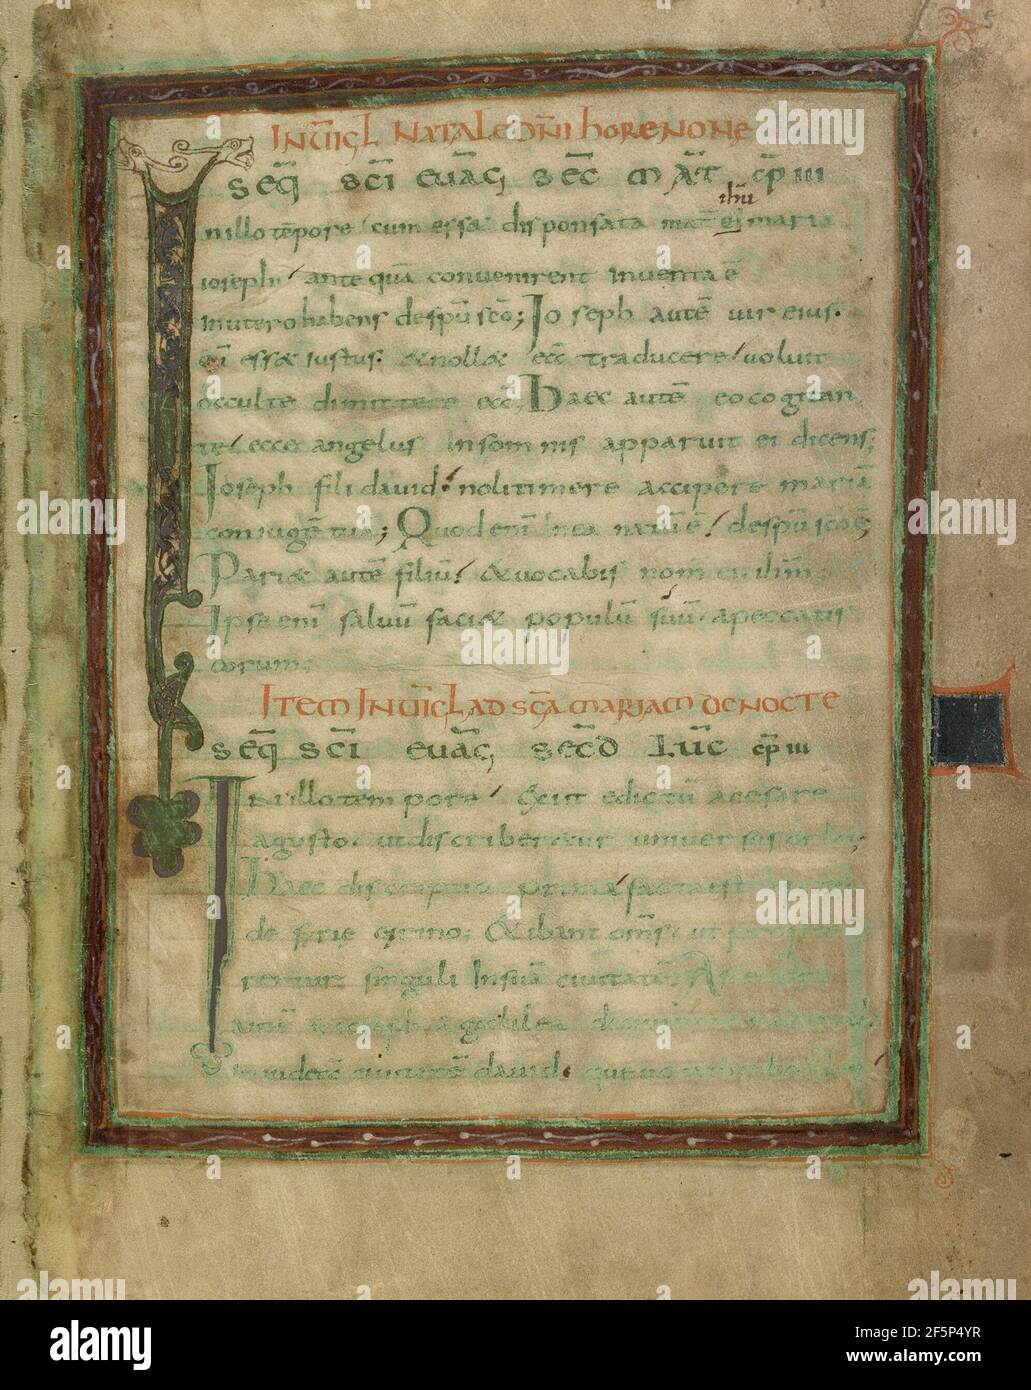 IN UIGL NATALE DNI HORE NONE
SEQ SCI EUAG, SEC MAT CP III
ihu
nillo tepore / cum essæ disponsata mat ei maria
ioseph / ante qua convenirent inventa e
inutero habens despu sco; Joseph aute uir eius.
cu essæ iustus. & nollæ ea traducere / voluit
occulte dimittere ea; Haec aute eo cogitan
te / ecce angelus In somnis apparuit ei dicens;
Joseph fili david. noli timere accipere maria
coniuge tua; Quod eni In ea natu e / despu sco e;
Pariæ aute filiu / & vocabis nom ei ihm;
Ipse eni salvu faciæ populu suu apeccatis
eorum;
ITEM IN UIGL AD SCA MARIAM DE NOCTE
SEQ SCI EUAG, SECD LUC CP III
Nillo tempore / Exiit edictu acesare
agusto. ut discriberæur universus orbis;
Haec discriptio prima facta est
de syrie cyrino; & ibant oms. ut profite
rentur singuli In sua civitate; Ascendit
aute & ioseph a galilea de civitate
in iudee civitate david.
alamy
Image ID: 2F5P4YR
www.alamy.com